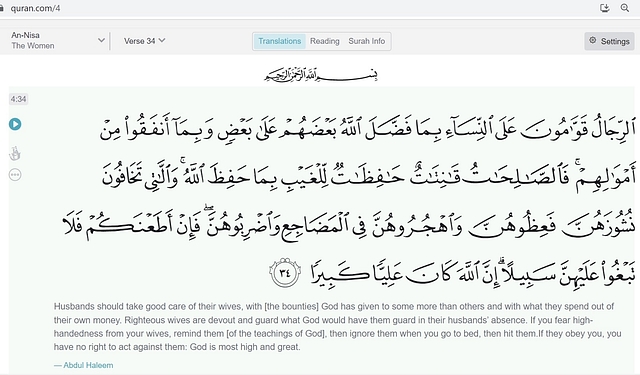 quran.com/4
An-Nisa
The Women
Verse 34
Translations Reading Surah Info
Settings
بِسْمِ اللَّهِ الرَّحْمَٰنِ الرَّحِيمِ
4:34
ٱلرِّجَالُ قَوَّٰمُونَ عَلَى ٱلنِّسَآءِ بِمَا فَضَّلَ ٱللَّهُ بَعْضَهُمْ عَلَىٰ بَعْضٍ وَبِمَآ أَنفَقُوا۟ مِنْ
أَمْوَٰلِهِمْ ۚ فَٱلصَّـٰلِحَـٰتُ قَـٰنِتَـٰتٌ حَـٰفِظَـٰتٌ لِّلْغَيْبِ بِمَا حَفِظَ ٱللَّهُ ۚ وَٱلَّـٰتِى تَخَافُونَ
نُشُوزَهُنَّ فَعِظُوهُنَّ وَٱهْجُرُوهُنَّ فِى ٱلْمَضَاجِعِ وَٱضْرِبُوهُنَّ ۖ فَإِنْ أَطَعْنَكُمْ فَلَا
تَبْغُوا۟ عَلَيْهِنَّ سَبِيلًا ۗ إِنَّ ٱللَّهَ كَانَ عَلِيًّا كَبِيرًا ٣٤
Husbands should take good care of their wives, with [the bounties] God has given to some more than others and with what they spend out of
their own money. Righteous wives are devout and guard what God would have them guard in their husbands’ absence. If you fear high-
handedness from your wives, remind them [of the teachings of God], then ignore them when you go to bed, then hit them.If they obey you, you
have no right to act against them: God is most high and great.
— Abdul Haleem